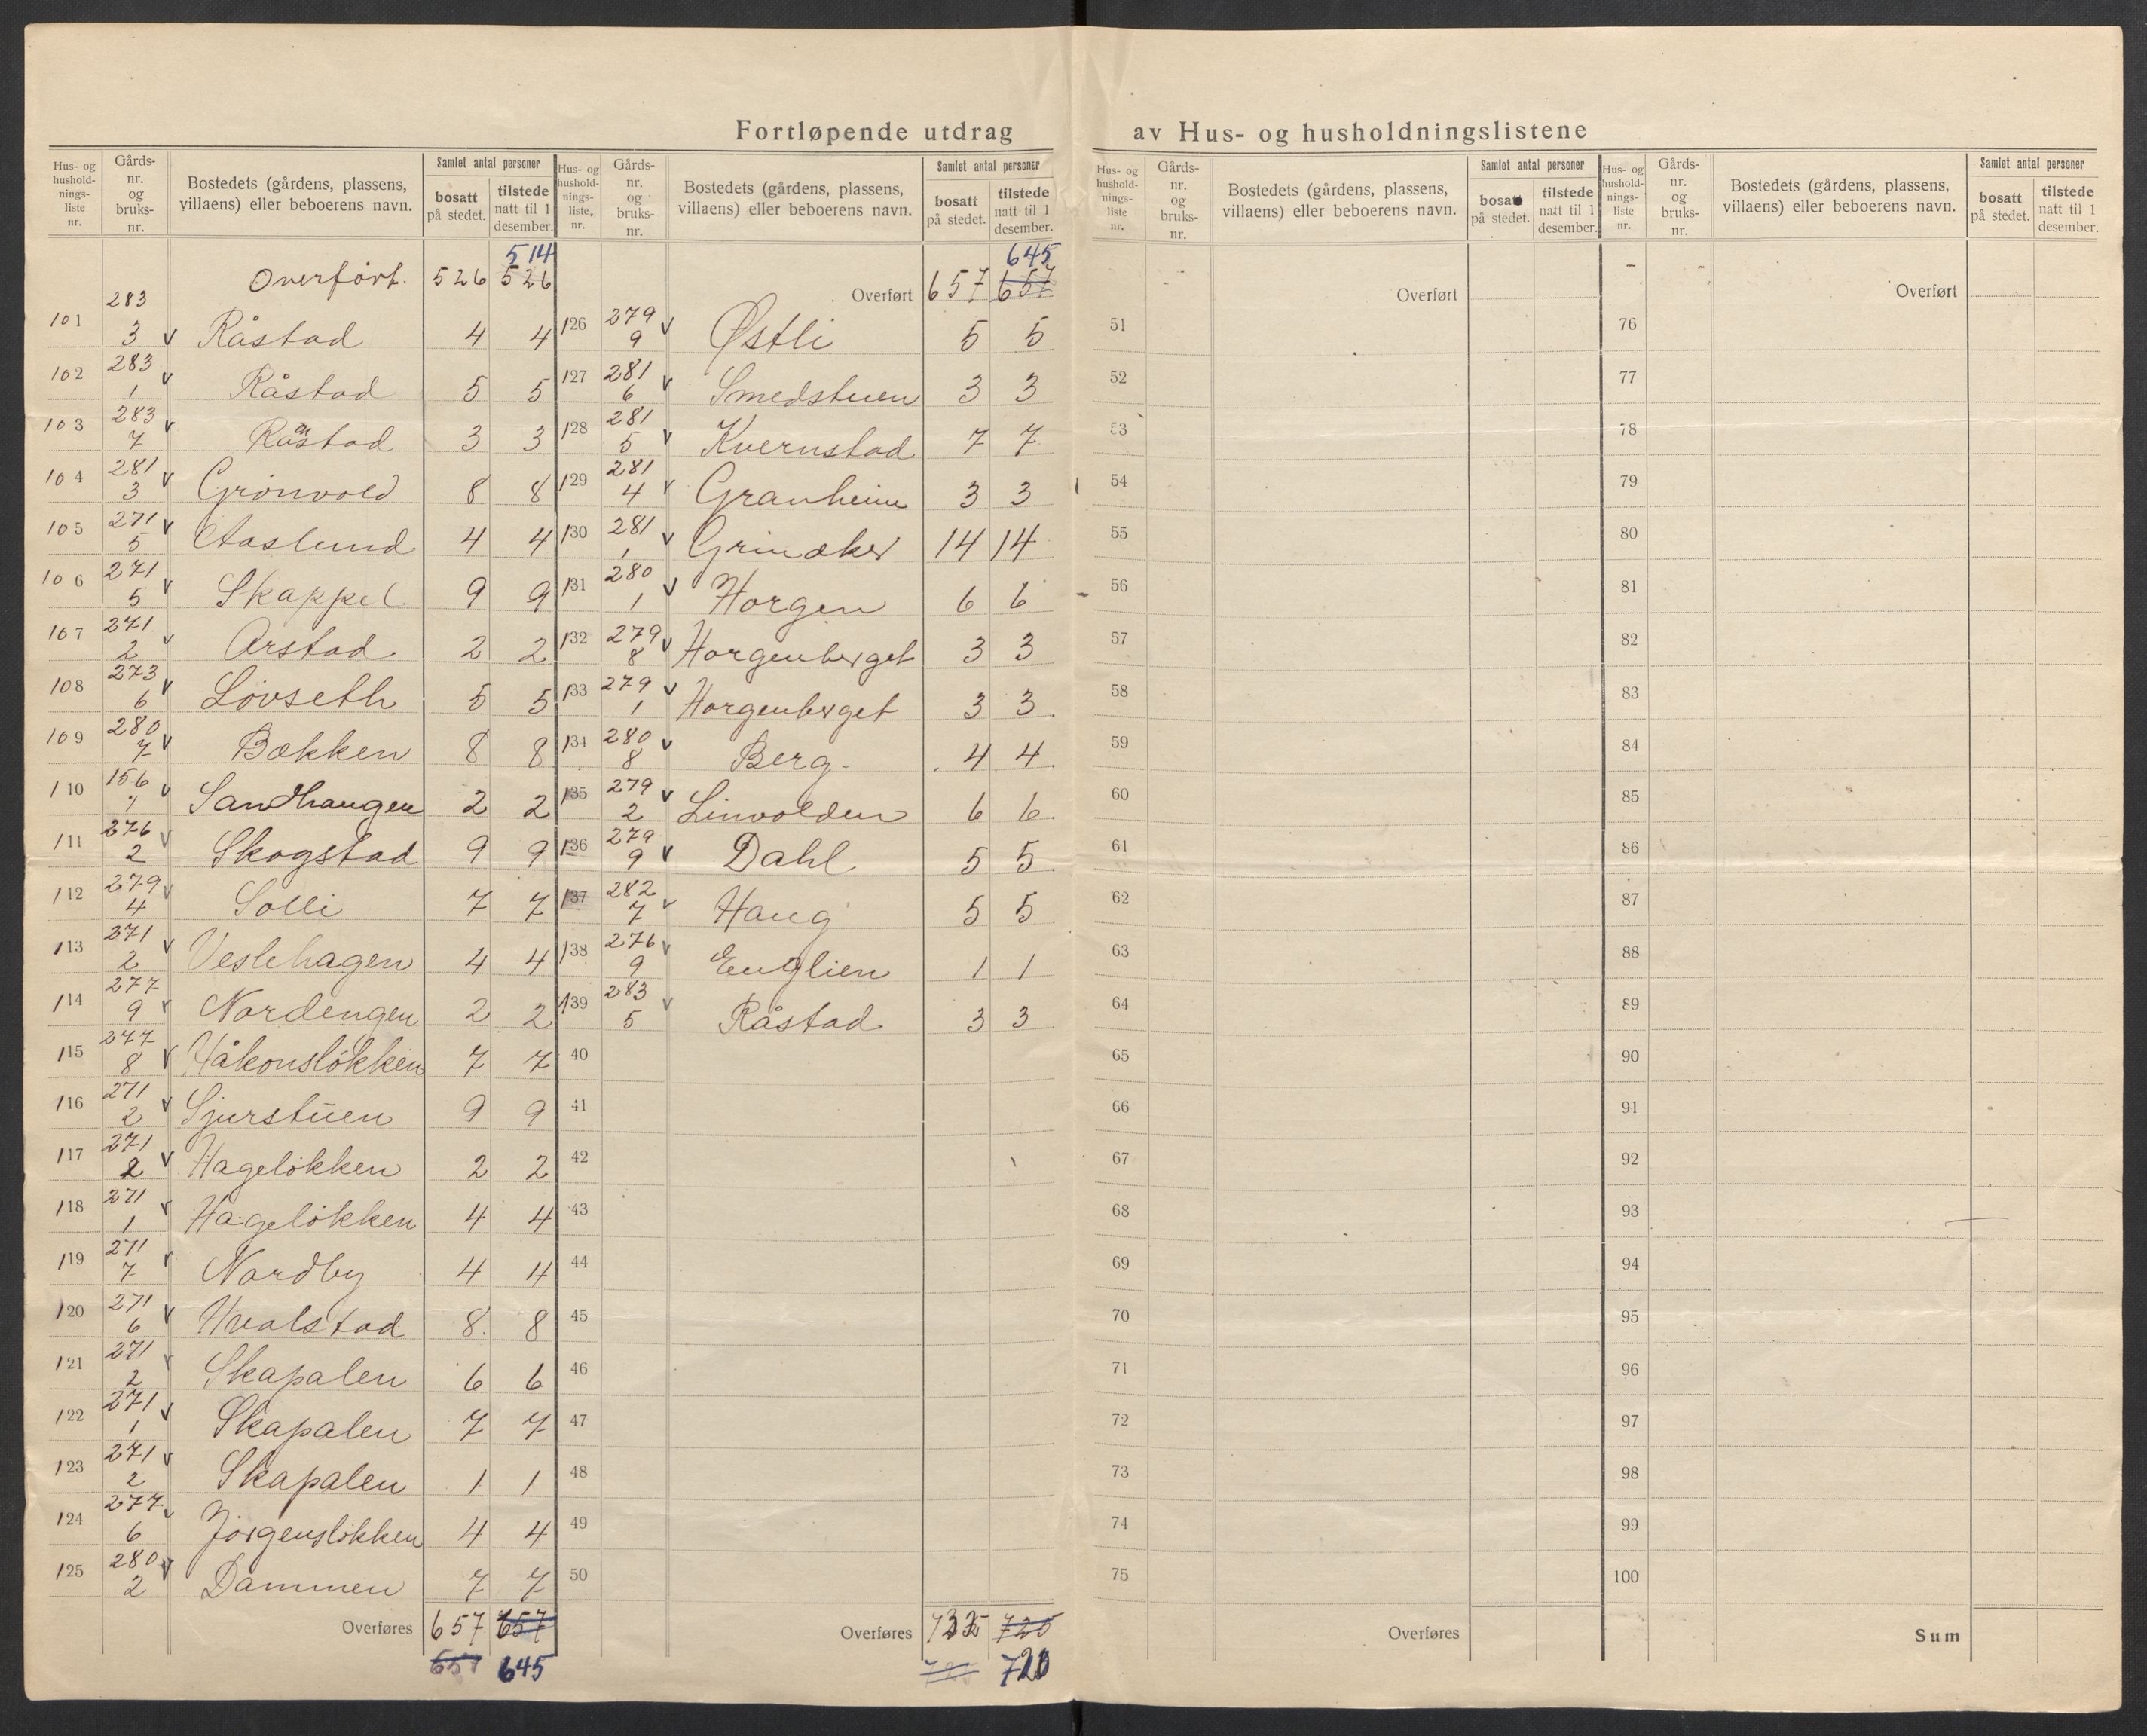 Fortløpende utdrag av Hus- og husholdningslistene
Hus- og hushold-nings-liste nr. | Gårds-nr. og bruks-nr. | Bostedets (gårdens, plassens, villaens) eller beboerens navn. | Samlet antal personer | bosatt på stedet. | tilstede natt til 1 desember.
514
Overført. 526 526
101 283 3 v Råstad 4 4
102 283 1 v Råstad 5 5
103 283 7 v Råstad 3 3
104 281 3 v Grönvold 8 8
105 271 5 v Aaslund 4 4
106 271 5 v Skappel 9 9
107 271 2 v Arstad 2 2
108 273 6 v Lövseth 5 5
109 280 7 v Bækken 8 8
110 156 v Sandhaugen 2 2
111 276 2 v Skogstad 9 9
112 279 4 v Solli 7 7
113 271 2 v Veslehagen 4 4
114 277 9 v Nordengen 2 2
115 277 8 v Håkonslökken 7 7
116 271 2 v Sjurstuen 9 9
117 271 2 v Hagelökken 2 2
118 271 1 v Hagelökken 4 4
119 271 7 v Nordby 4 4
120 271 6 v Hvalstad 8 8
121 271 2 v Skapalen 6 6
122 271 1 v Skapalen 7 7
123 271 2 v Skapalen 1 1
124 277 6 v Jörgenslökken 4 4
125 280 2 v Dammen 7 7
Overføres 657 657
657 645
Hus- og hushold-nings-liste, nr. | Gårds-nr. og bruks-nr. | Bostedets (gårdens, plassens, villaens) eller beboerens navn. | Samlet antal personer | bosatt på stedet. | tilstede natt til 1 desember.
645
Overført 657 657
126 279 9 v Østli 5 5
127 281 6 v Smedstuen 3 3
128 281 5 v Kvernstad 7 7
129 281 4 v Granheim 3 3
130 281 1 v Grinaker 14 14
131 280 1 v Horgen 6 6
132 279 8 v Horgenberget 3 3
133 279 1 v Horgenberget 3 3
134 280 8 v Berg 4 4
135 279 2 v Linvolden 6 6
136 279 9 v Dahl 5 5
137 282 7 v Haug 5 5
138 276 9 v Englien 1 1
139 283 5 v Råstad 3 3
40
41
42
43
44
45
46
47
48
49
50
Overføres 725
720
Hus- og hushold-nings-liste nr. | Gårds-nr. og bruks-nr. | Bostedets (gårdens, plassens, villaens) eller beboerens navn. | Samlet antal personer | bosatt på stedet. | tilstede natt til 1 desember.
Overført
51
52
53
54
55
56
57
58
59
60
61
62
63
64
65
66
67
68
69
70
71
72
73
74
75
Overføres
Hus- og hushold-nings-liste nr. | Gårds-nr. og bruks-nr. | Bostedets (gårdens, plassens, villaens) eller beboerens navn. | Samlet antal personer | bosatt på stedet. | tilstede natt til 1 desember.
Overført
76
77
78
79
80
81
82
83
84
85
86
87
88
89
90
91
92
93
94
95
96
97
98
99
100
Sum